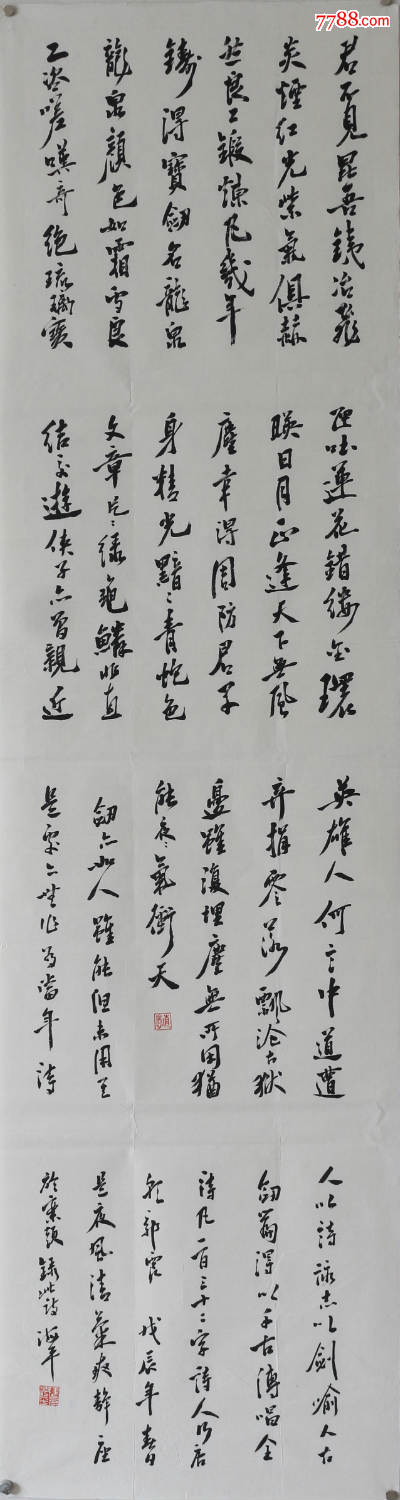 7788.com
君不見昆吾鐵冶飛
炎煙紅光紫氣俱赫
然良工鍛煉凡幾年
鑄得寶劍名龍泉
龍泉顏色如霜雪良
工咨嗟嘆奇絕琉璃寶
匣吐蓮花錯鏤金環
映日月正逢天下無風
塵幸得周防君子
身精光黯〻青蛇色
文章片〻綠龜鱗非直
結交遊俠子亦曾親近
英雄人何言中道遭
棄捐零落飄淪古獄
邊雖復埋塵無所用猶
能夜〻氣衝天
劍亦如人雖能但未用至
是亦無作為當年詩
人以詩詠志以劍喻人古
劍篇得以千古傳唱全
詩凡一百三十二字詩人乃唐
朝郭震 戊辰年春
是夜風清氣爽靜座
於案頭錄此詩 海平